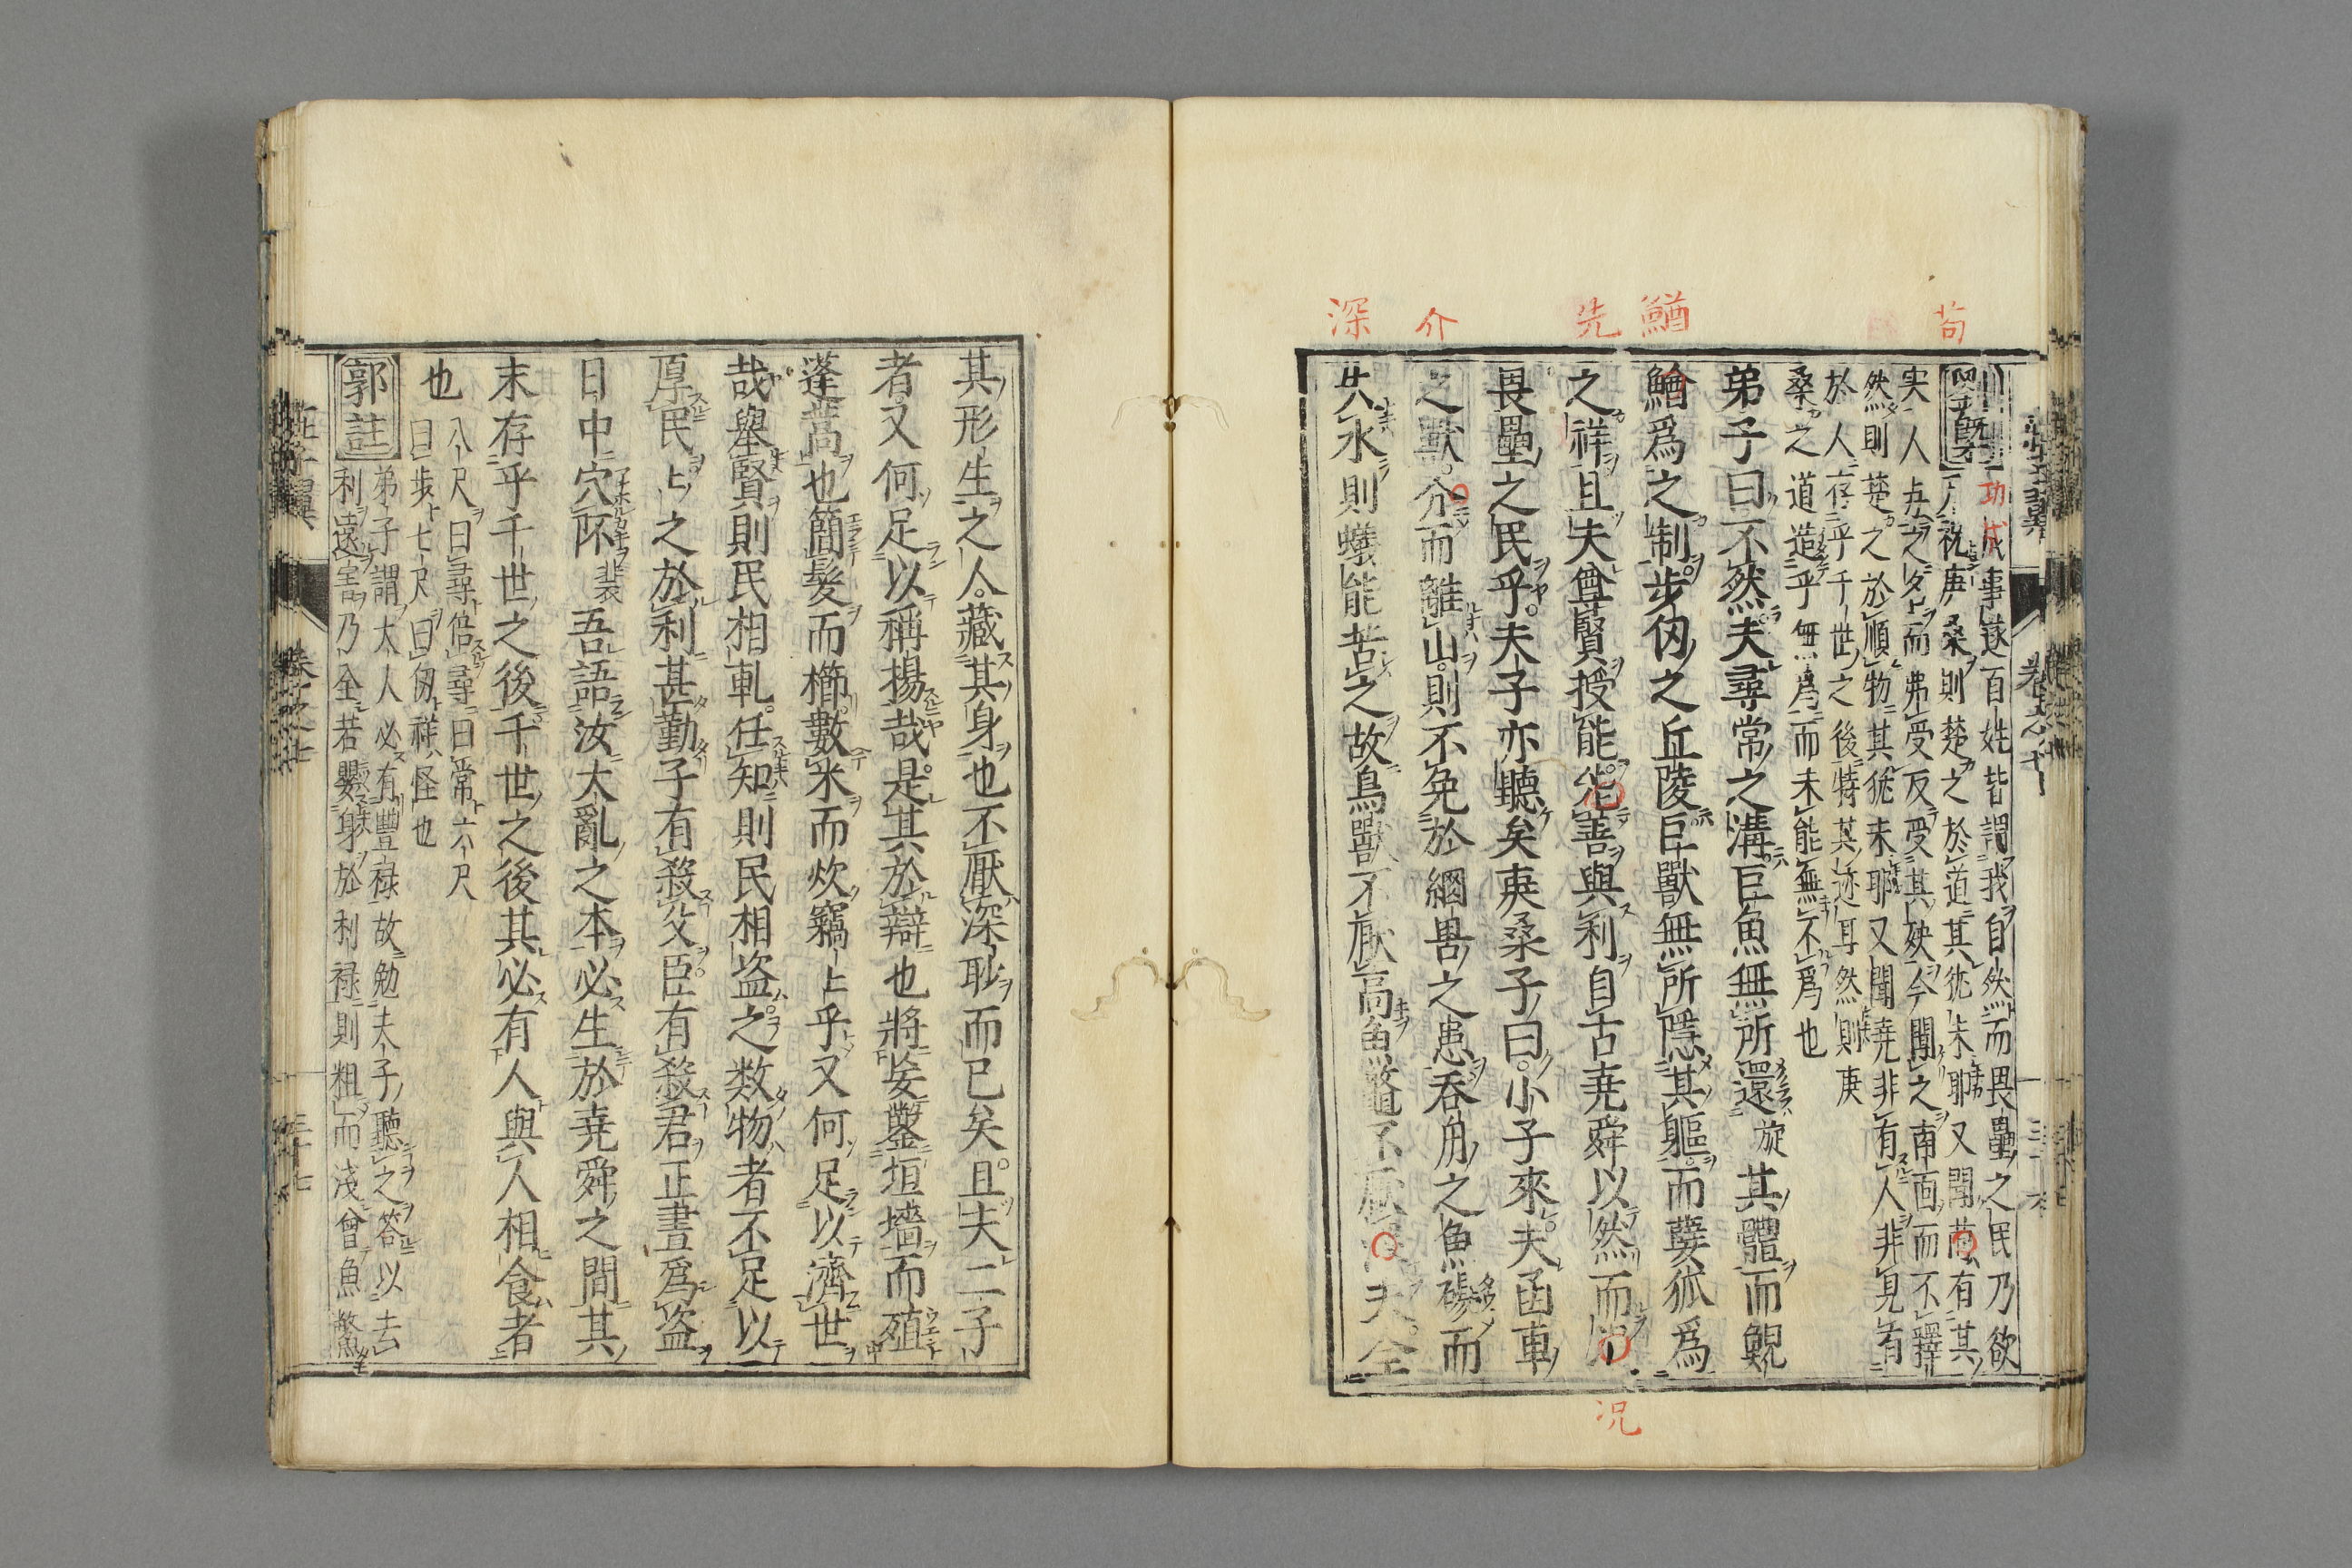 苟
鰌
先
介
深
功成
事遂百姓皆謂我自然而畏壘之民乃欲
人祝庚桑則楚之於道其猶未耶又聞
有其
実人与之名而弗受反受其殃今聞之南面而不釋
然則楚之於順物其猶未耶又聞堯非有人非見有
於人存乎千世之後特其迹耳然則庚
桑之道造乎無為而未能無不爲也
弟子曰不然夫尋常之溝巨魚無所還旋其體而鯢
鰌爲之制步仭之丘陵巨獸無所隱其軀而㜸狐爲
之祥且夫尊賢授能先善與利自古堯舜以然而况
畏壘之民乎夫子亦聽矣庚桑子曰小子來夫函車
之獸介而離山則不免於網罟之患吞舟之魚碭而
失水則蟻能苦之故鳥獸不厭高魚鼈不厭深夫全
况
其形生之人藏其身也不厭深眇而已矣且夫二子
者又何足以稱揚哉是其於辯也將妄鑿垣墻而殖
蓬蒿也簡髮而櫛數米而炊竊上乎又何足以濟世
哉舉賢則民相軋任知則民相盗之数物者不足以
厚民上之於利甚勤子有殺父臣有殺君正晝爲盗
日中穴阫裴吾語汝大亂之本必生於堯舜之間其
末存乎千世之後千世之後其必有人與人相食者
也
八尺曰尋倍尋曰常六尺
曰步七尺曰仭祥怪也
郭註
弟子謂大人必有豐禄故勉夫子聽之荅以去
利遠害乃全若嬰身於利禄則粗而淺曾魚鱉